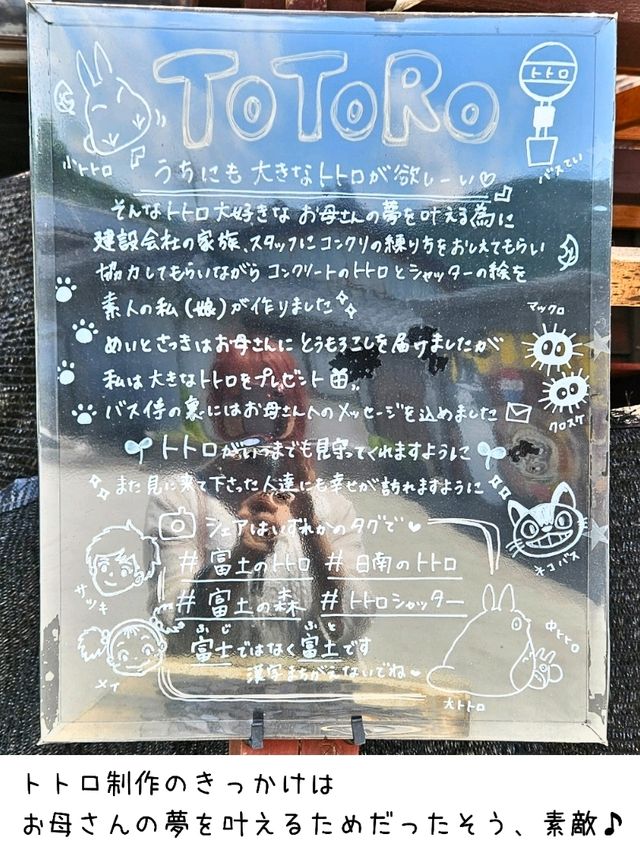 TOTORO
トトロ
バスてい
小トトロ
うちにも大きなトトロが欲しーい♡
そんなトトロ大好きなお母さんの夢を叶える為に
建設会社の家族、スタッフにコンクリの練り方をおしえてもらい
協力してもらいながらコンクリートのトトロとシャッターの絵を
素人の私(娘)が作りました
マックロ
めいとさつきはお母さんにとうもろこしを届けましたが
私は大きなトトロをプレゼント
クロスケ
バス停の裏にはお母さんへのメッセージを込めました
トトロがいつまでも見守ってくれますように
また見に来て下さった人達にも幸せが訪れますように
シェアはいずれかのタグで♥
ネコバス
#富土のトトロ #日南のトトロ
サツキ
#富土の森 #トトロシャッター
ふじ ふと
富士ではなく富土です
中トトロ
漢字まちがえないでね♥
メイ
大トトロ
トトロ制作のきっかけは
お母さんの夢を叶えるためだったそう、素敵♪